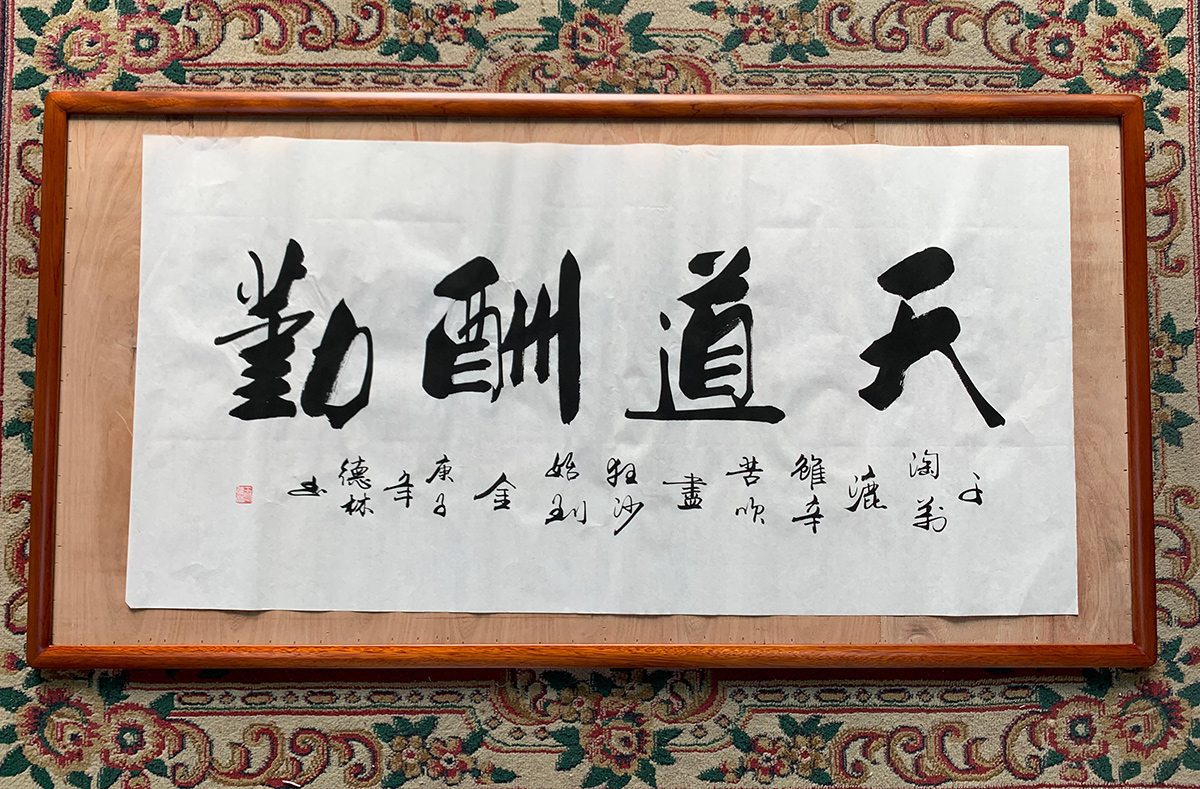 天道酬勤
千
淘萬
漉
雖辛
苦吹
盡
狂沙
始到
金
庚子
年
德林
书